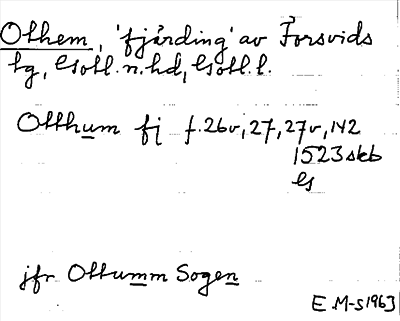 Othem, 'fjärding' av Forsvids
tg, Gotl. n. hd, Gotl. l.
Otthum fj f. 26v, 27, 27v, 142
1523 skb
G
jfr Ottumm Sogen
E. M-s 1963